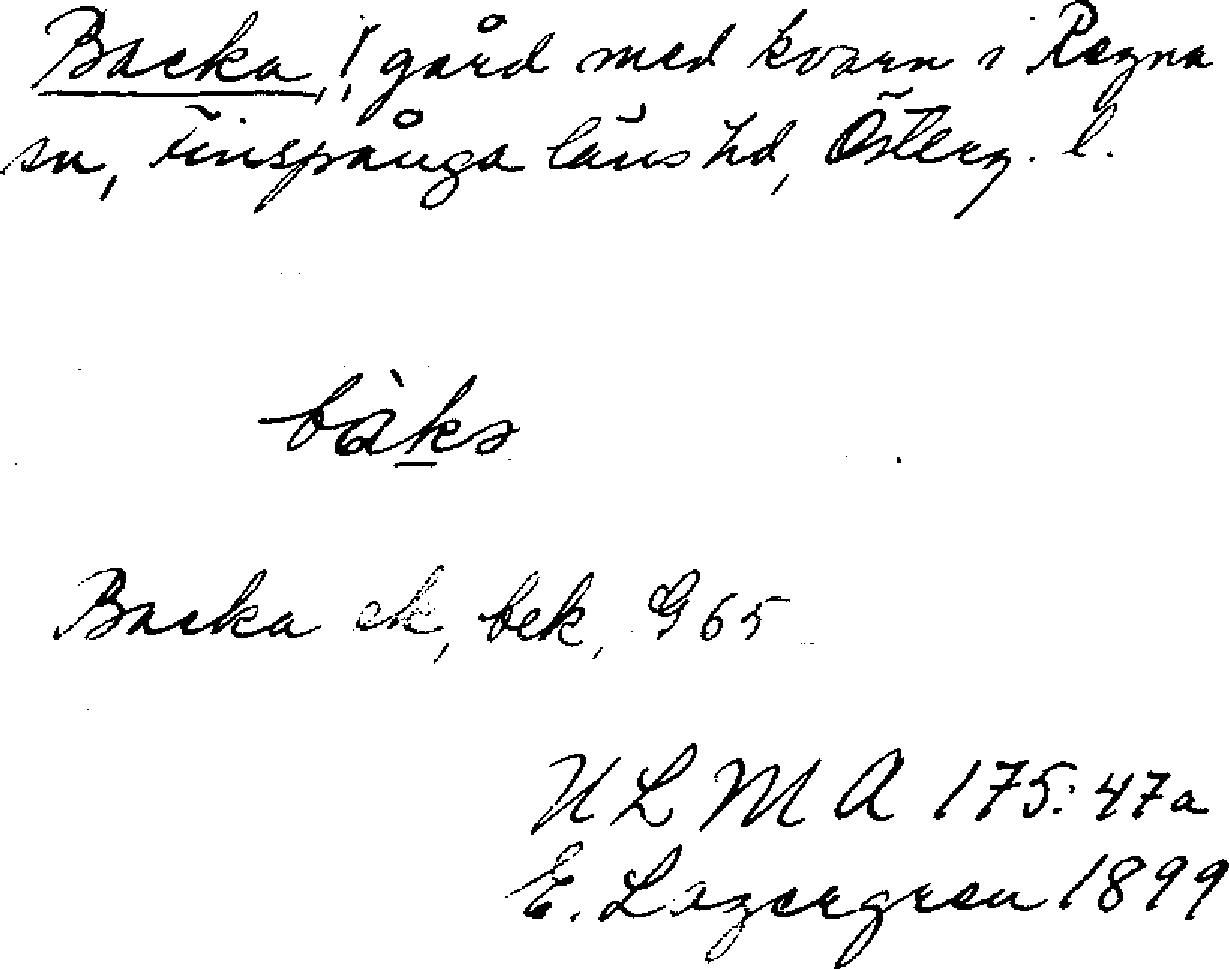 Backa, ! gård med kvarn i Regna
sn, Finspånga läns hd, Österg. l.
bàkа
Backa ek, bek, G 65
ULMA 175:47a
E. Lagergren 1899